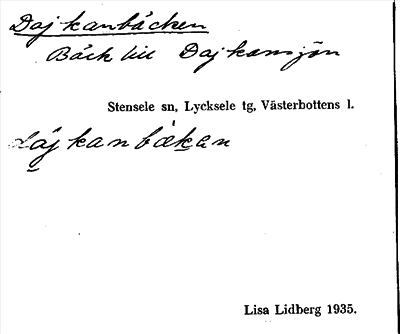 Dajkanbäcken
Bäck till Dajkansjön
Stensele sn, Lycksele tg, Västerbottens l.
dájkanbækan
Lisa Lidberg 1935.